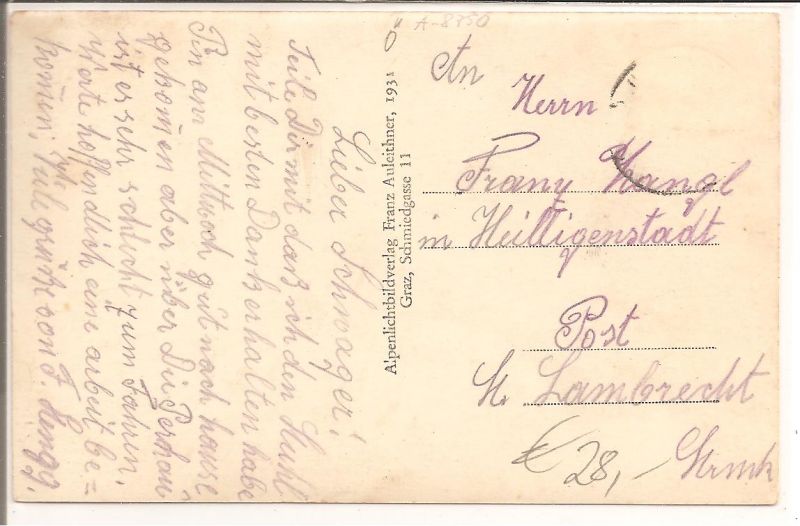 Lieber Schwager!
Teile Dir mit daß ich den Stuhl
mit besten Dank erhalten habe
Bin am Mittwoch gut nach hause
gekom̄en aber über Die
ist es sehr schlecht zum Fahren.
werte hoffendlich eine arbeit be=
kom̄en, Viele grüße von F.
Alpenlichtbildverlag Franz Auleithner, 1931
Graz, Schmiedgasse 11
A-8850
An
Herrn
Franz
in Heilligenstadt
Post
St. Lambrecht
Strmk
€ 28,-